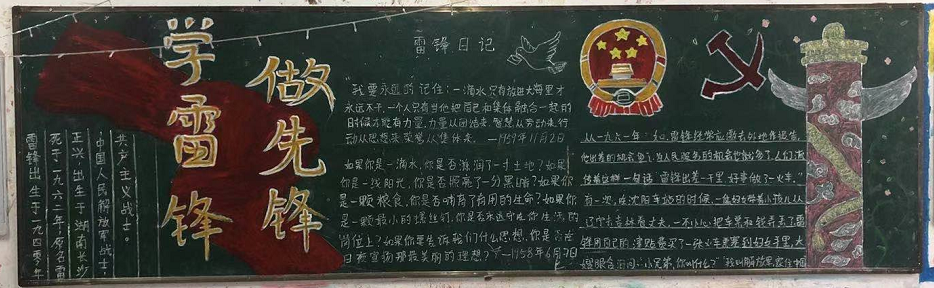 学雷锋
做先锋
雷锋出生于一九四零年
死于一九六二年，原名雷
正兴，出生于湖南长沙
中国人民解放军战士，
共产主义战士。
雷锋日记
"我要永远的记住：一滴水只有放进大海里才
永远不干，一个人只有当他把自己和集体融合一起的
时候才能有力量，力量从团结来，智慧从劳动来，行
动从思想来，荣誉从集体来。 一1959年11月2日
如果你是一滴水，你是否滋润了一寸土地？如果
你是一线阳光，你是否照亮了一分黑暗？如果你
是一颗粮食，你是否哺育了有用的生命？如果你
是一颗最小的螺丝钉，你是否永远守在你生活的
岗位上？如果你要告诉我们什么思想，你是否在
日夜宣扬那最美丽的理想？"一1958年6月7日
从一九六一年 起，雷锋经常应邀去外地作报告，
他出差的机会多了，为人民服务的机会也就多了，人们流
传着这样一句话："雷锋出差一千里，好事做了一火车。"
有一次，在沈阳车站的时候，一 妇女带着小孩从
去 看丈夫，一不小心把车票和钱弄丢了，雷
锋用自己的津贴费买了一张火车票塞到妇女手里，大
嫂眼含 问："小兄弟，你叫什么？""我叫解放军，家住中国